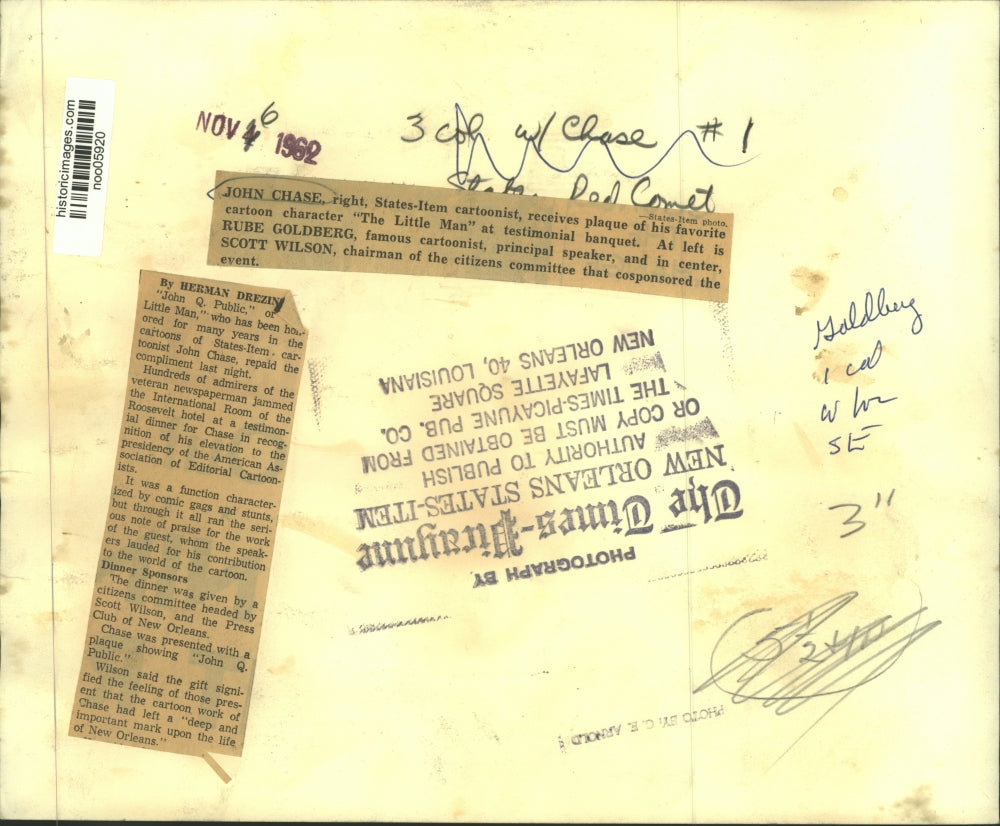 historicimages.com
noo05920
NOV 6 1962
3 col w/ Chase #1
Red Comet
—States-Item photo.
JOHN CHASE, right, States-Item cartoonist, receives plaque of his favorite
cartoon character "The Little Man" at testimonial banquet. At left is
RUBE GOLDBERG, famous cartoonist, principal speaker, and in center,
SCOTT WILSON, chairman of the citizens committee that cosponsored the
event.
By HERMAN DREZIN
"John Q. Public," or
Little Man," who has been hon-
ored for many years in the
cartoons of States-Item car-
toonist John Chase, repaid the
compliment last night.
Hundreds of admirers of the
veteran newspaperman jammed
the International Room of the
Roosevelt hotel at a testimon-
ial dinner for Chase in recog-
nition of his elevation to the
presidency of the American As-
sociation of Editorial Cartoon-
ists.
It was a function character-
ized by comic gags and stunts,
but through it all ran the seri-
ous note of praise for the work
of the guest, whom the speak-
ers lauded for his contribution
to the world of the cartoon.
Dinner Sponsors
The dinner was given by a
citizens committee headed by
Scott Wilson, and the Press
Club of New Orleans.
Chase was presented with a
plaque showing "John Q.
Public."
Wilson said the gift signi-
fied the feeling of those pres-
ent that the cartoon work of
Chase had left a "deep and
important mark upon the life
of New Orleans."
PHOTOGRAPH BY
The Times-Picayune
NEW ORLEANS STATES-ITEM
AUTHORITY TO PUBLISH
OR COPY MUST BE OBTAINED FROM
THE TIMES-PICAYUNE PUB. CO.
LAFAYETTE SQUARE
NEW ORLEANS 40, LOUISIANA
Goldberg
1 col
SE
3"
PHOTO BY, C. E. ARNOLD